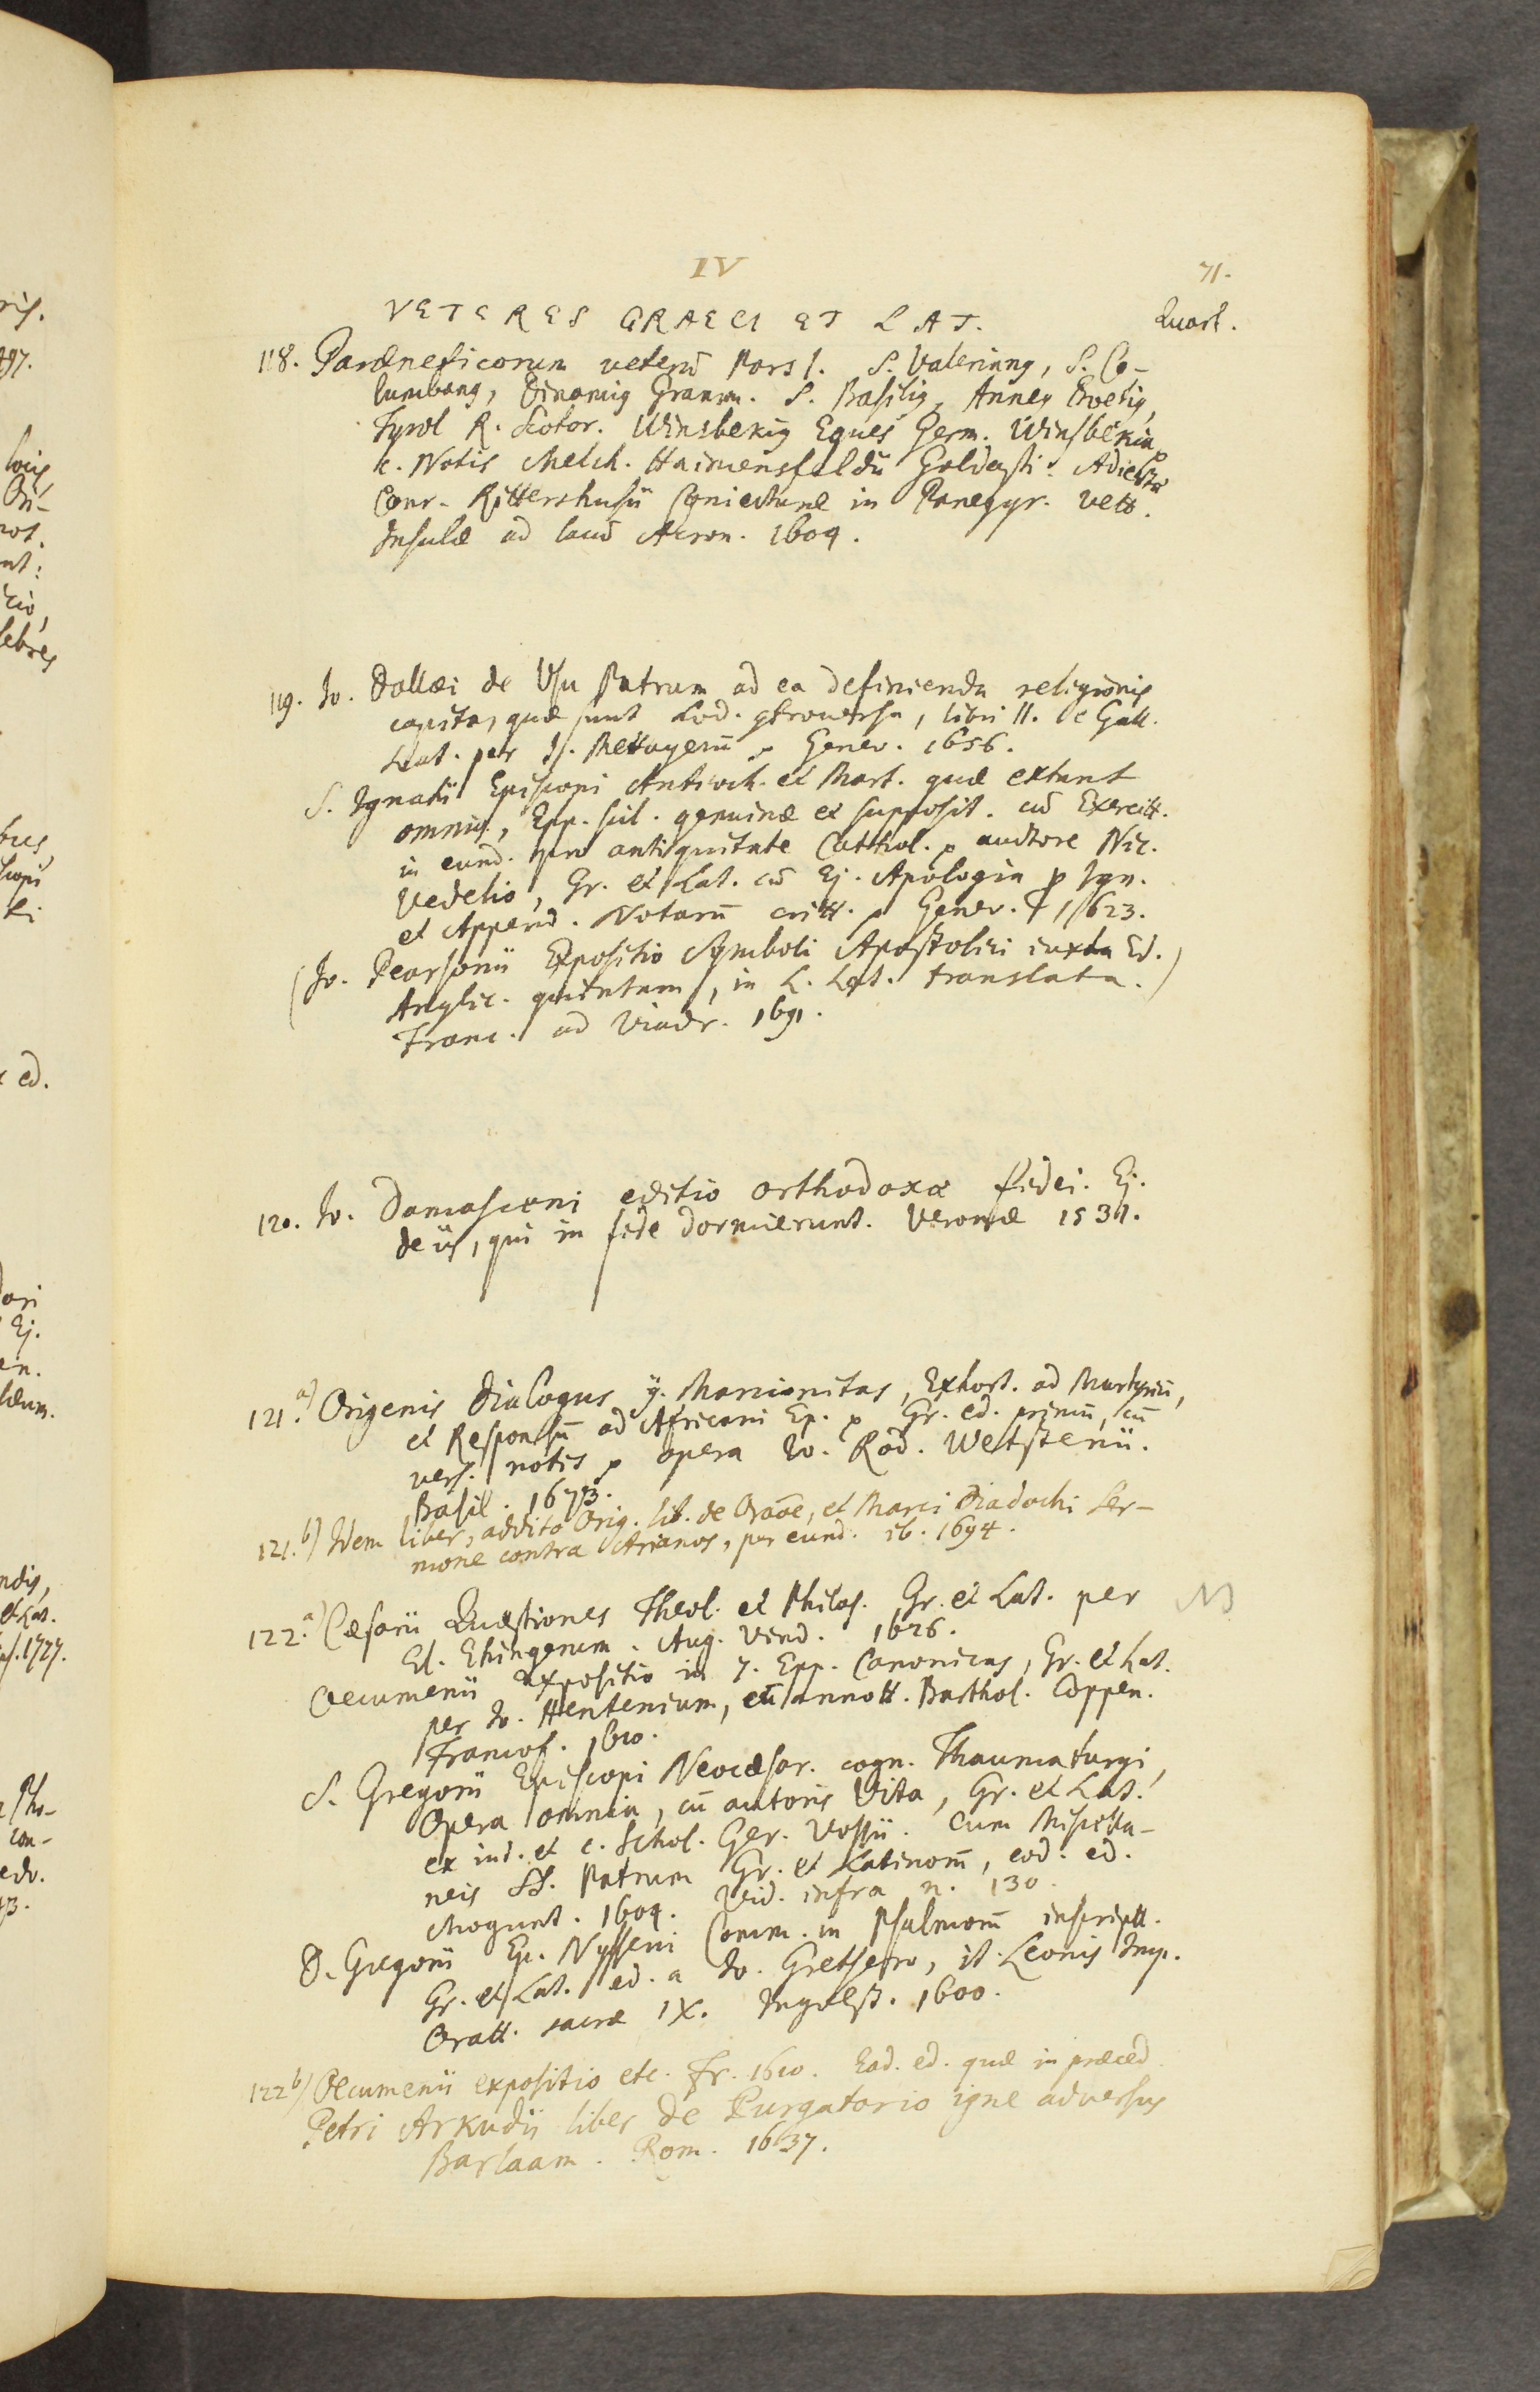 IV
71.
VETERES GRAECI ET LAT.
Quart.
118. Paræneticorum veterū Pars I. S. Valerianꝰ, S. Co-
lumbanꝰ, Dinamiꝰ Gramm. S. Basiliꝰ, Anneꝰ Boetiꝰ,
Tyrol R. Scotor. Winsbekiꝰ Eques Germ. Winsbekia,
c. Notis Melch. Haimensfeldii Goldasti. Adiectæ
Conr. Rittershusii Coniecturæ in Panegyr. vett.
Insulæ ad lacū Acron. 1604.
119. Jo. Dallæi de Usu Patrum ad ea definienda religionis
capita, quæ sunt hod. ꝯtroversa, libri II. e Gall.
Lat. per J. Mettayerū. Genev. 1656.
S. Ignatii Episcopi Antioch. et Mart. quæ extant
omnia, Epp. scil. genuinæ et supposit. cū Exercitt.
in eund. pro antiquitate Cathol. auctore Nic.
Vedelio, Gr. et Lat. cū Ej. Apologia p Ign.
et Append. Notarū critt. Genev. 1623.
(Jo. Pearsonii Expositio Symboli Apostolici iuxta Ed.
Anglic. quintam, in L. Lat. translata.)
Franc. ad Viadr. 1691.
120. Jo. Damasceni editio orthodoxæ fidei. Ej.
de iis, qui in fide dormierunt. Veronæ 1531.
121.a) Origenis Dialogus ꝯ. Marcionitas, Exhort. ad Martyriū,
et Responsū ad Africani Ep. Gr. ed. primū, cū
vers. notis opera Jo. Rod. Wetstenii.
Basil. 1673.
121.b) Idem liber, addito Orig. lib. de Oraōe, et Marci Diadochi Ser-
mone contra Arianos, per eund. ib. 1694.
122.a) Cæsarii Quæstiones Theol. et Philos. Gr. et Lat. per
El. Ehingerum. Aug. Vind. 1626.
Oecumenii expositio in 7. Epp. Canonicas, Gr. et Lat.
per Jo. Hentenium, cū annott. Barthol. Coppen.
Francof. 1610.
S. Gregorii Episcopi Neocæsar. cogn. Thaumaturgi,
Opera omnia, cū autoris Vita, Gr. et Lat.
ex ind. et c. Schol. Ger. Vossii. Cum Miscella-
neis SS. Patrum Gr. et Latinorū, eod. ed.
Mogunt. 1604. Vid. infra n. 130.
D. Gregorii Ep. Nysseni Comm. in Psalmorū inscriptt.
Gr. et Lat. ed. a Jo. Gretsero, it. Leonis Imp.
Oratt. sacræ IX. Ingolst. 1600.
122 b) Oecumenii expositio etc. Fr. 1610. Ead. ed. quæ in præced.
Petri Arkudii liber de Purgatorio igne adversus
Barlaam. Rom. 1637.